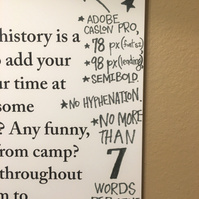 history is a
o add your
ur time at
some
? Any funny,
from camp?
throughout
m to
★ ADOBE
CASLON PRO,
★78 px (font sz)
★98 px (leading)
★SEMIBOLD.
★NO HYPHENATION.
★NO MORE
THAN
7
WORDS